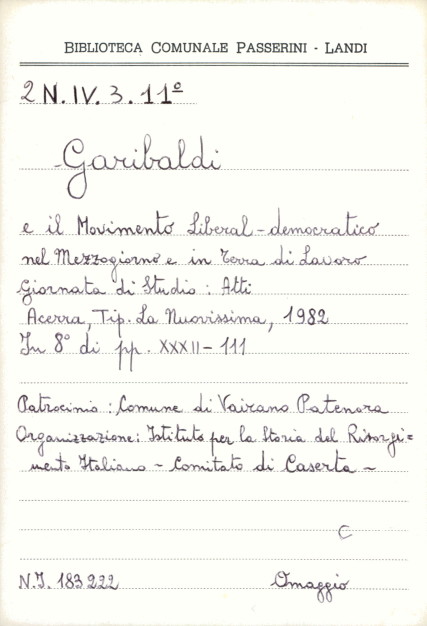 BIBLIOTECA COMUNALE PASSERINI - LANDI
2 N. IV. 3. 11º
Garibaldi
e il Movimento Liberal-democratico
nel Mezzogiorno e in Terra di Lavoro
Giornata di Studio : Atti
Acerra, Tip. La Nuovissima, 1982
In 8° di pp. XXXII - 111
Patrocinio : Comune di Vairano Patenora
Organizzazione: Istituto per la Storia del Risorgi=
mento Italiano - Comitato di Caserta -
C
N.I. 183222 Omaggio